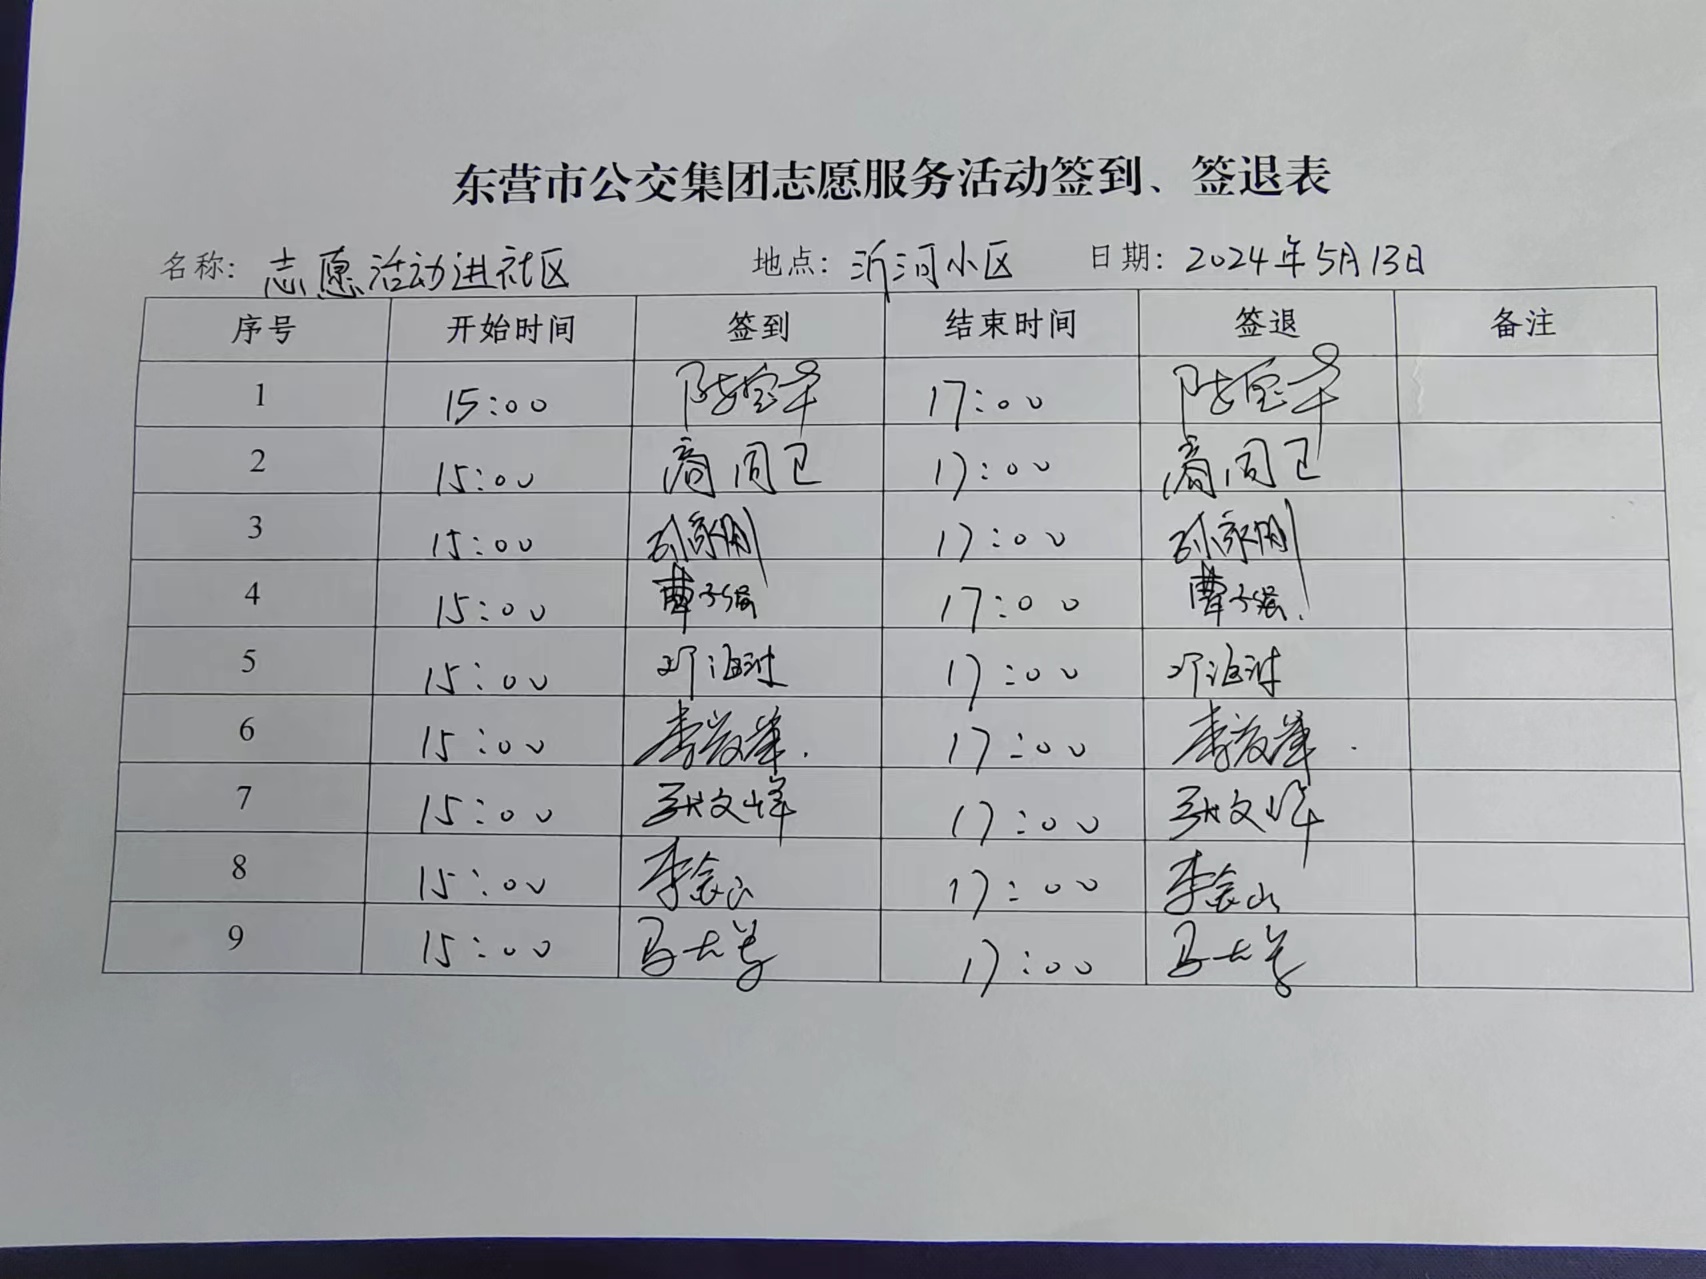 东营市公交集团志愿服务活动签到、签退表
名称: 志愿活动进社区 地点: 沂河小区 日期: 2024年5月13日
序号 开始时间 签到 结束时间 签退 备注
1 15:00 陈宝华 17:00 陈宝华
2 15:00 商同卫 17:00 商同卫
3 15:00 孙家刚 17:00 孙家刚
4 15:00 曹子强 17:00 曹子强
5 15:00 邓海涛 17:00 邓海涛
6 15:00 17:00
7 15:00 张文峰 17:00 张文峰
8 15:00 李念山 17:00 李念山
9 15:00 17:00